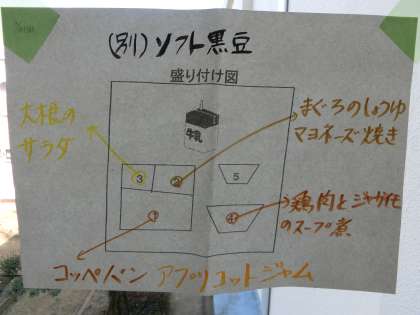 (別)ソフト黒豆
盛り付け図
牛乳
大根の
サラダ
まぐろのしょうゆ
マヨネーズ焼き
3
2
5
1
4
鶏肉とジャガイモ
のスープ煮
コッペパン アプリコットジャム